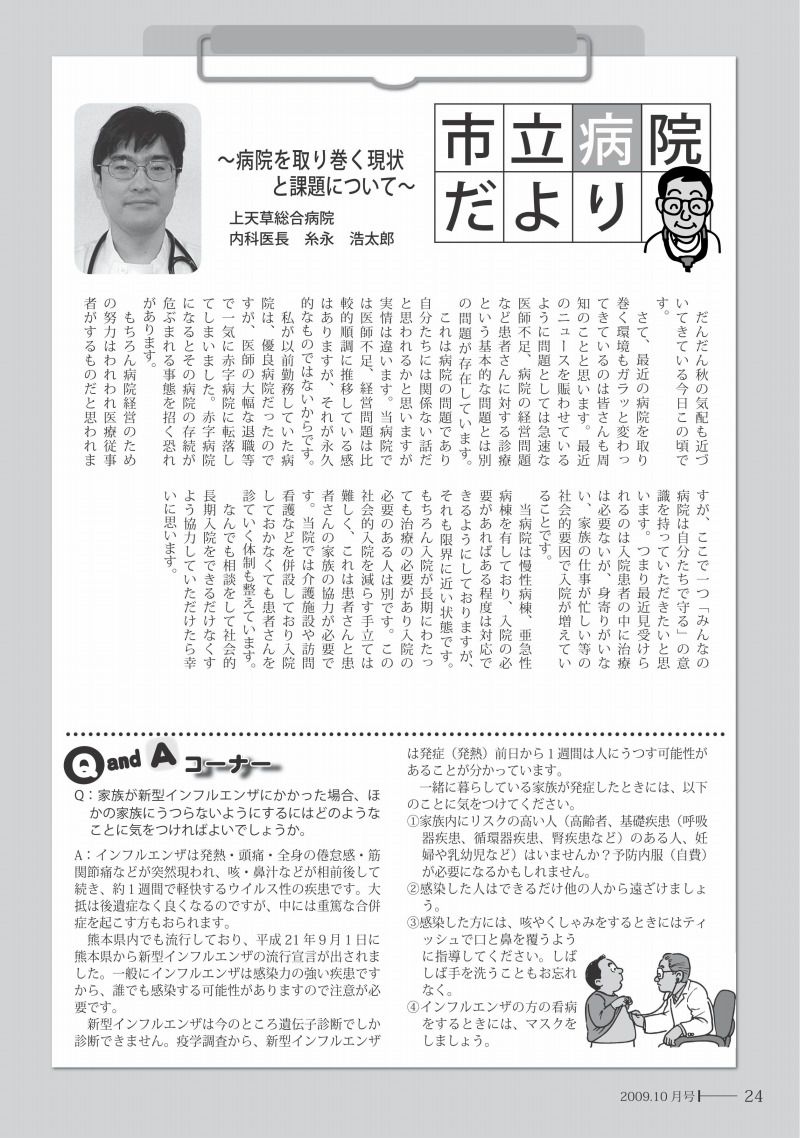 市立病院
だより
～病院を取り巻く現状
と課題について～
上天草総合病院
内科医長　糸永　浩太郎
だんだん秋の気配も近づ
いてきている今日この頃で
す。
さて、最近の病院を取り
巻く環境もガラッと変わっ
てきているのは皆さんも周
知のことと思います。最近
のニュースを賑わせている
ように問題としては急速な
医師不足、病院の経営問題
など患者さんに対する診療
という基本的な問題とは別
の問題が存在しています。
これは病院の問題であり
自分たちには関係ない話だ
と思われるかと思いますが
実情は違います。当病院で
は医師不足、経営問題は比
較的順調に推移している感
はありますが、それが永久
的なものではないからです。
私が以前勤務していた病
院は、優良病院だったので
すが、医師の大幅な退職等
で一気に赤字病院に転落し
てしまいました。赤字病院
になるとその病院の存続が
危ぶまれる事態を招く恐れ
があります。
もちろん病院経営のため
の努力はわれわれ医療従事
者がするものだと思われま
すが、ここで一つ「みんなの
病院は自分たちで守る」の意
識を持っていただきたいと思
います。つまり最近見受けら
れるのは入院患者の中に治療
は必要ないが、身寄りがいな
い、家族の仕事が忙しい等の
社会的要因で入院が増えてい
ることです。
当病院は慢性病棟、亜急性
病棟を有しており、入院の必
要があればある程度は対応で
きるようにしておりますが、
それも限界に近い状態です。
もちろん入院が長期にわたっ
ても治療の必要があり入院の
必要のある人は別です。この
社会的入院を減らす手立ては
難しく、これは患者さんと患
者さんの家族の協力が必要で
す。当院では介護施設や訪問
看護などを併設しており入院
しておかなくても患者さんを
診ていく体制も整えています。
なんでも相談をして社会的
長期入院をできるだけなくす
よう協力していただけたら幸
いに思います。
Q and A コーナー
Q：家族が新型インフルエンザにかかった場合、ほ
かの家族にうつらないようにするにはどのような
ことに気をつければよいでしょうか。
A：インフルエンザは発熱・頭痛・全身の倦怠感・筋
関節痛などが突然現われ、咳・鼻汁などが相前後して
続き、約１週間で軽快するウイルス性の疾患です。大
抵は後遺症なく良くなるのですが、中には重篤な合併
症を起こす方もおられます。
熊本県内でも流行しており、平成 21 年９月１日に
熊本県から新型インフルエンザの流行宣言が出されま
した。一般にインフルエンザは感染力の強い疾患です
から、誰でも感染する可能性がありますので注意が必
要です。
新型インフルエンザは今のところ遺伝子診断でしか
診断できません。疫学調査から、新型インフルエンザ
は発症（発熱）前日から１週間は人にうつす可能性が
あることが分かっています。
一緒に暮らしている家族が発症したときには、以下
のことに気をつけてください。
①家族内にリスクの高い人（高齢者、基礎疾患（呼吸
器疾患、循環器疾患、腎疾患など）のある人、妊
婦や乳幼児など）はいませんか？予防内服（自費）
が必要になるかもしれません。
②感染した人はできるだけ他の人から遠ざけましょ
う。
③感染した方には、咳やくしゃみをするときにはティ
ッシュで口と鼻を覆うよう
に指導してください。しば
しば手を洗うこともお忘れ
なく。
④インフルエンザの方の看病
をするときには、マスクを
しましょう。
2009.10 月号 24